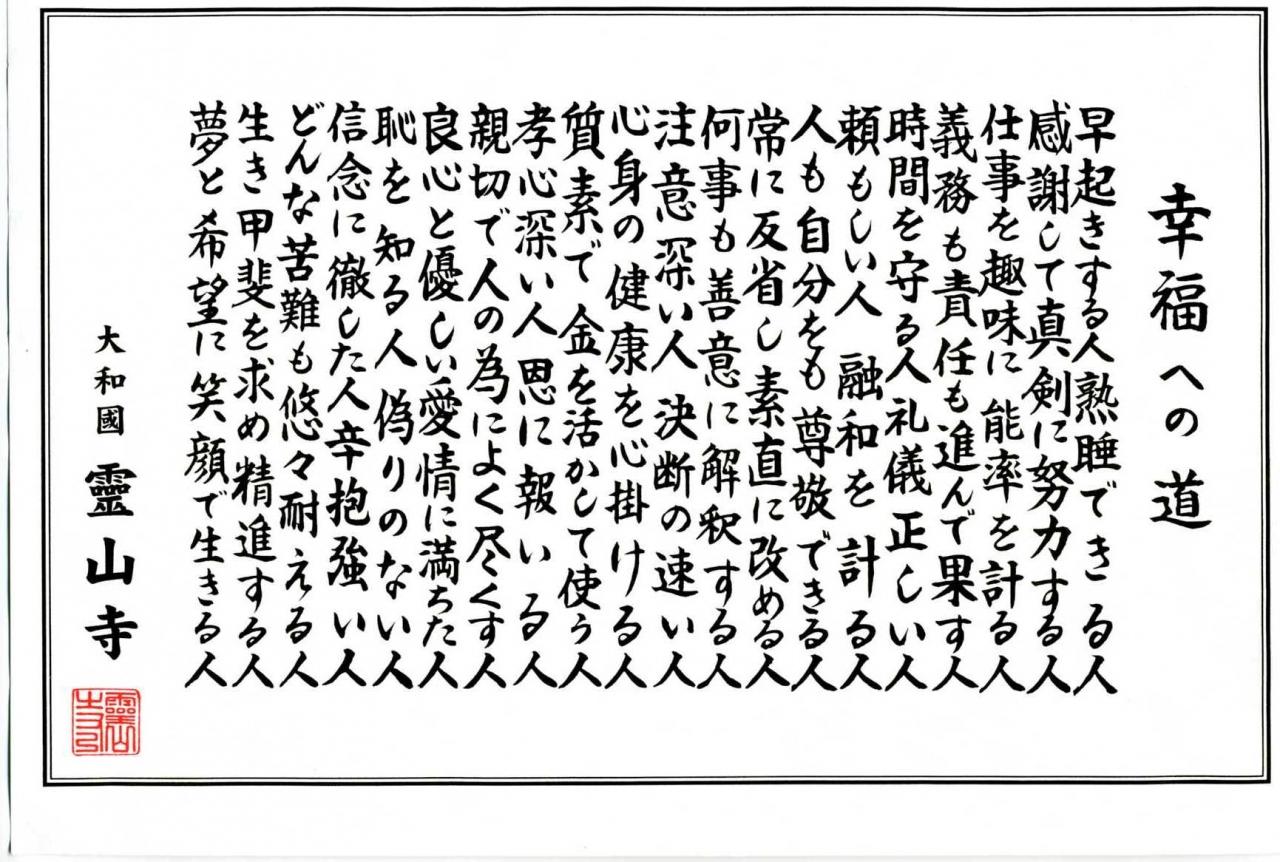 幸福への道
早起きする人熟睡できる人
感謝して真剣に努力する人
仕事を趣味に能率を計る人
義務も責任も進んで果す人
時間を守る人礼儀正しい人
頼もしい人 融和を計る人
人も自分をも尊敬できる人
常に反省し素直に改める人
何事も善意に解釈する人
注意深い人 決断の速い人
心身の健康を心掛ける人
質素で金を活かして使う人
孝心深い人恩に報いる人
親切で人の為によく尽くす人
良心と優しい愛情に満ちた人
恥を知る人 偽りのない人
信念に徹した人辛抱強い人
どんな苦難も悠々耐える人
生き甲斐を求め精進する人
夢と希望に笑顔で生きる人
大和國 靈山寺
靈山
寺印